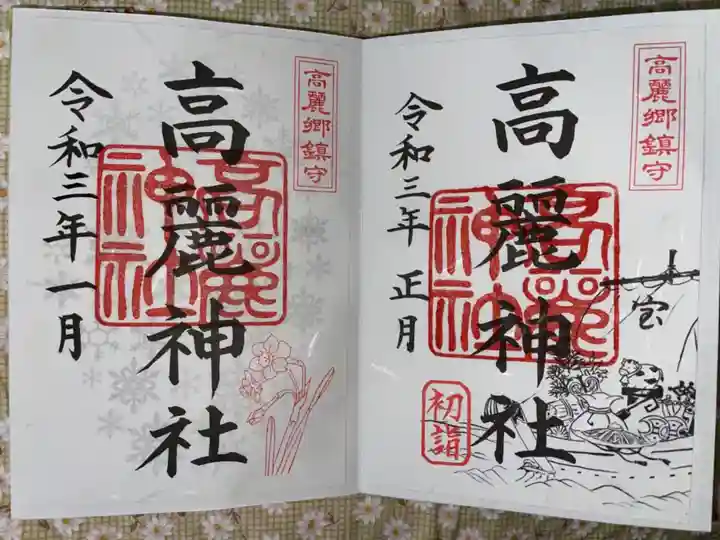 高麗郷鎮守
高麗神社
高麗神社
令和三年一月
高麗郷鎮守
高麗神社
高麗神社
令和三年 正月
初詣
宝